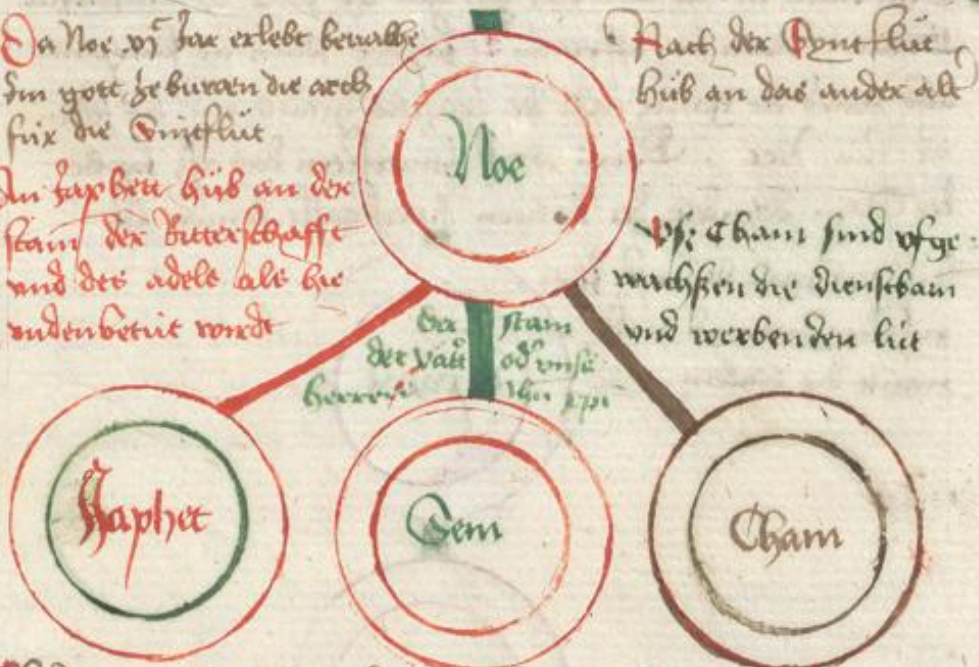 Da Noe vjᶜ Jar erlebt
im gott ze buwen die arch
für die Sintflüt
Nach der Syntflüt
hüb an das ander alt
Noe
In Japhett hüb an der
stam der Ritterschafft
und des adels als hie
undenbetüt wirdt
Vss Cham sind vfge
wachssen die dienstbarn
vnd werbenden lüt
der stam
der vätt od' vnss
herren ihu xpi
Japhet
Sem
Cham